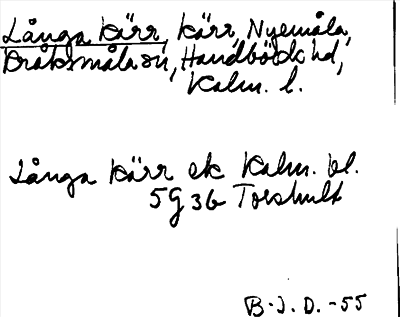 Långa kärr, kärr, Nyemåla,
Bråksmåla sn, Handbörds hd,
Kalm. l.
Långa kärr ek Kalm. bl.
5g 3b Torshult
B.J.D. -55